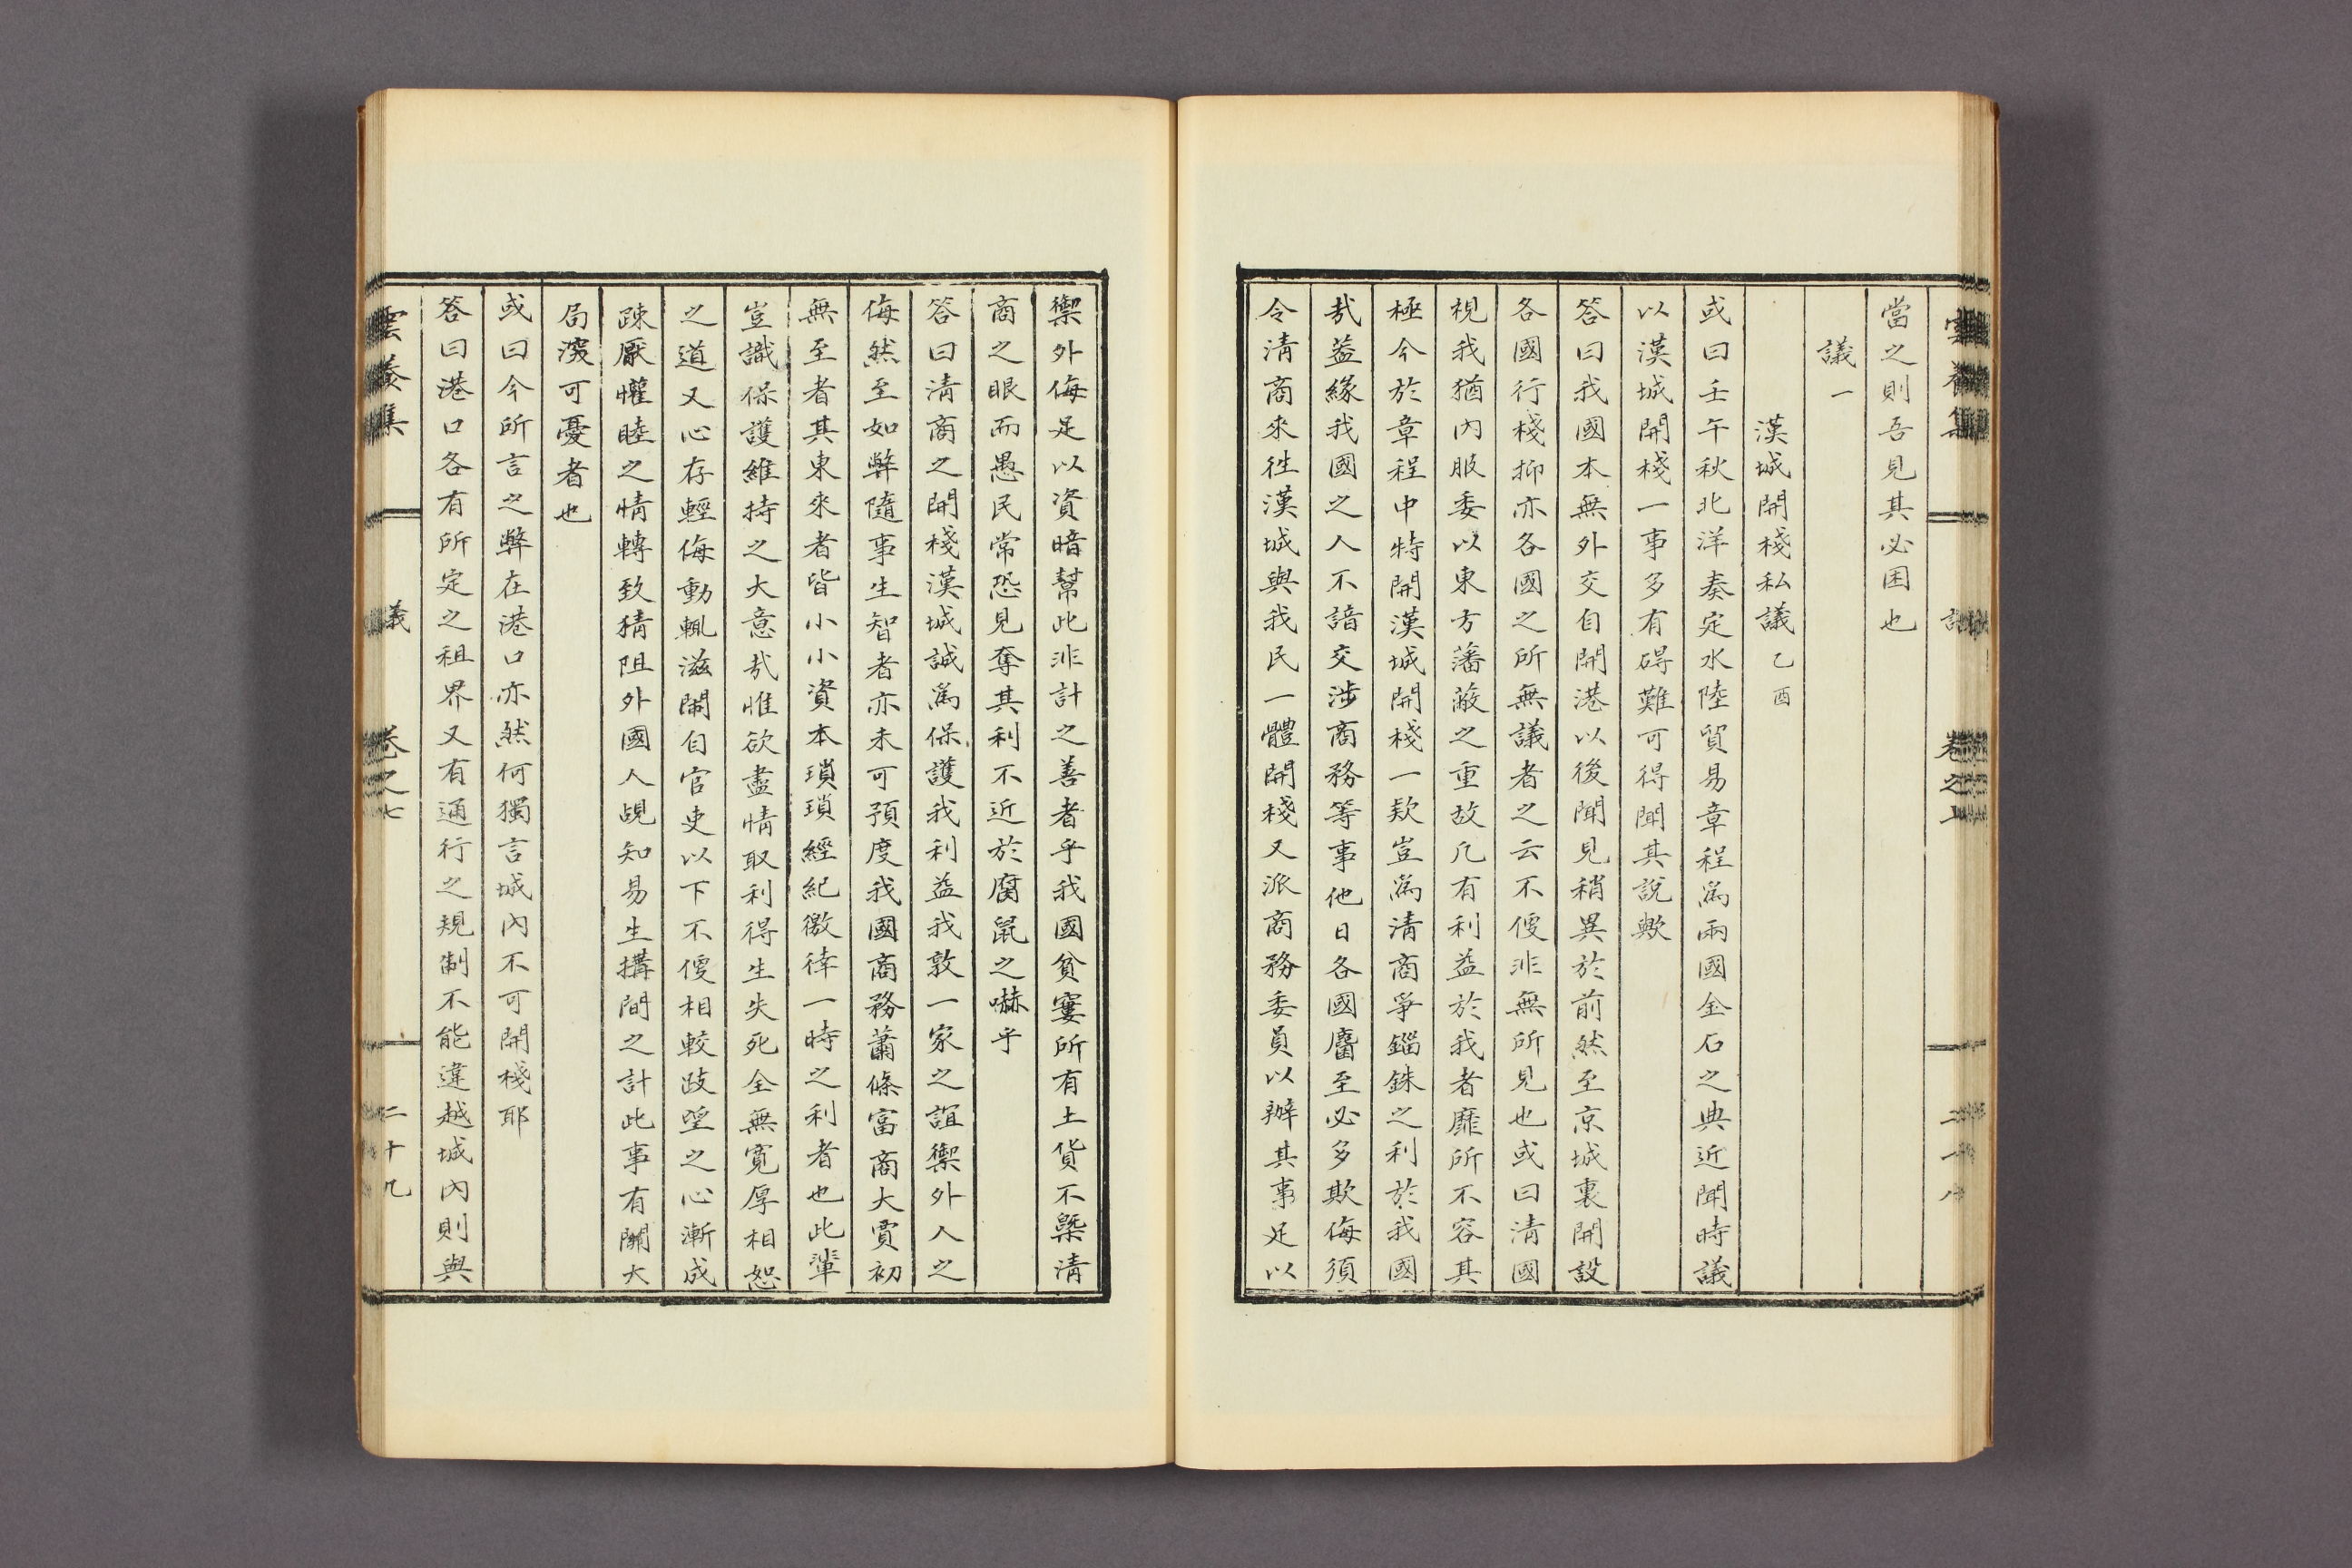 當之則吾見其必困也
議一
漢城開棧私議乙酉
或曰壬午秋北洋奏定水陸貿易章程爲兩國金石之典近聞時議
以漢城開棧一事多有碍難可得聞其說歟
答曰我國本無外交自開港以後聞見稍異於前然至京城裏開設
各國行棧抑亦各國之所無議者之云不便非無所見也或曰清國
視我猶內服委以東方藩蔽之重故凡有利益於我者靡所不容其
極今於章程中特開漢城開棧一款豈爲清商爭錙銖之利於我國
哉蓋緣我國之人不諳交涉商務等事他日各國麕至必多欺侮須
令清商來往漢城與我民一體開棧又派商務委員以辦其事足以
禦外侮足以資暗幫此非計之善者乎我國貧寠所有土貨不槩清
商之眼而愚民常恐見奪其利不近於腐鼠之嚇乎
答曰清商之開棧漢城誠爲保護我利益我敦一家之誼禦外人之
侮然至如弊隨事生智者亦未可預度我國商務蕭條富商大賈初
無至者其東來者皆小小資本瑣瑣經紀徼倖一時之利者也此輩
豈識保護維持之大意哉惟欲盡情取利得生失死全無寬厚相恕
之道又心存輕侮動輒滋鬧自官吏以下不便相較跂望之心漸成
疎厭懽睦之情轉致猜阻外國人覘知易生搆間之計此事有關大
局深可憂者也
或曰今所言之弊在港口亦然何獨言城內不可開棧耶
答曰港口各有所定之租界又有通行之規制不能違越城內則與
雲養集 議 卷之七 二十九